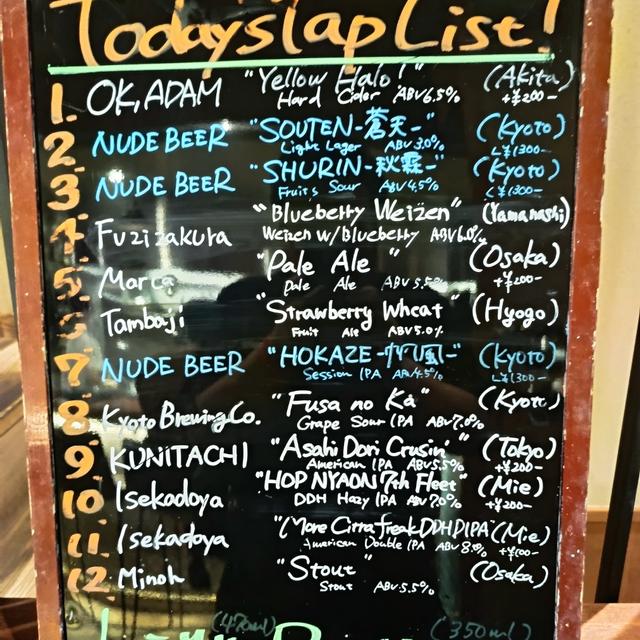 Today's Tap List!
1. OK, ADAM "Yellow Halo!" (Akita)
Hard Cider ABV 6.5% +¥200-
2. NUDE BEER "SOUTEN-蒼天-" (Kyoto)
Light Lager ABV 3.0% L¥1300-
3 NUDE BEER "SHURIN-秋霖-" (Kyoto)
Fruits Sour ABV 4.5% L¥1300-
4. Fuzizakura "Blueberry Weizen" (Yamanashi)
Weizen w/Blueberry ABV 6.0%
5. "Pale Ale" (Osaka)
Pale Ale ABV 5.5% +¥200-
Tambaji "Strawberry Wheat" (Hyogo)
Fruit Ale ABV 5.0%
7 NUDE BEER "HOKAZE- 風-" (Kyoto)
Session IPA ABV 4.5% L¥1300-
8. Kyoto Brewing Co. "Fusa no Ka" (Kyoto)
Grape Sour IPA ABV 7.0%
9. KUNITACHI "Asahi Dori Crusin'" (Tokyo)
American IPA ABV 5.5% +¥200-
10 Isekadoya "HOP NYAON 7th Fleet" (Mie)
DDH Hazy IPA ABV 7.0% +¥200-
11. Isekadoya "More Citra freak DDHDIPA" (Mie)
American Double IPA ABV 8.5%
12. Minoh "Stout" (Osaka)
Stout ABV 5.5%
(470ml) (350ml)